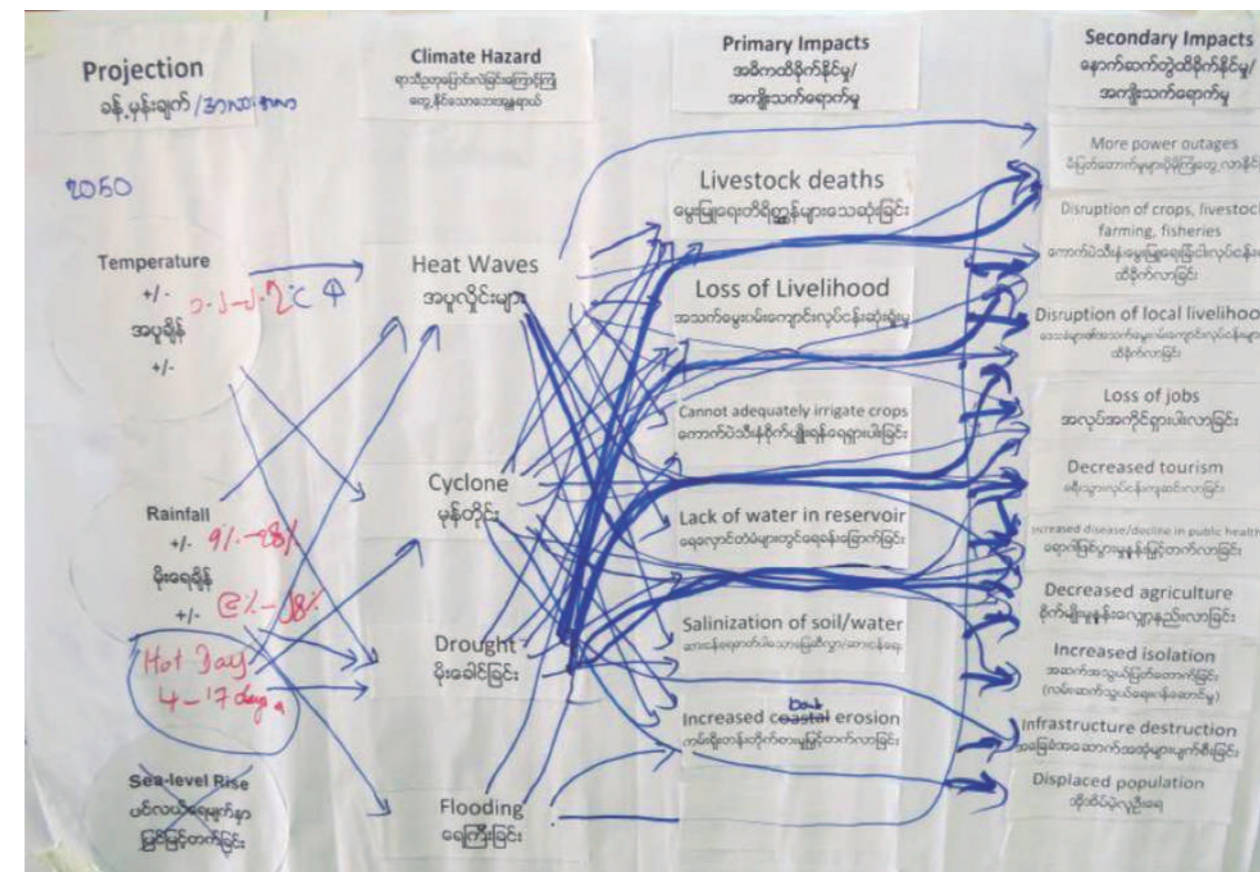 Projection
ခန့်မှန်းချက်
2050
Temperature
+/-
အပူချိန်
+/-
Rainfall
+/- 9%-28%
မိုးရေချိန်
+/-
Hot Day
4-17 days
Sea-level Rise
ပင်လယ်ရေမျက်နှာ
မြင့်တက်ခြင်း
Climate Hazard
ရာသီဥတုပြောင်းလဲခြင်းကြောင့်ကြုံ
တွေ့နိုင်သောဘေးအန္တရာယ်
Heat Waves
အပူလှိုင်းများ
Cyclone
မုန်တိုင်း
Drought
မိုးခေါင်ခြင်း
Flooding
ရေကြီးခြင်း
Primary Impacts
အဓိကထိခိုက်နိုင်မှု/
အကျိုးသက်ရောက်မှု
Livestock deaths
မွေးမြူရေးတိရိစ္ဆာန်များသေဆုံးခြင်း
Loss of Livelihood
အသက်မွေးဝမ်းကျောင်းလုပ်ငန်းဆုံးရှုံးမှု
Cannot adequately irrigate crops
ကောက်ပဲသီးနှံစိုက်ပျိုးရန်ရေရှားပါးခြင်း
Lack of water in reservoir
ရေလှောင်တမံများတွင်ရေခန်းခြောက်ခြင်း
Salinization of soil/water
bank
Increased coastal erosion
ကမ်းရိုးတန်းတိုက်စားမှုမြင့်တက်လာခြင်း
Secondary Impacts
နောက်ဆက်တွဲထိခိုက်နိုင်မှု/
အကျိုးသက်ရောက်မှု
More power outages
Disruption of crops, livestock
farming, fisheries
ထိခိုက်လာခြင်း
Disruption of local livelihoo
ထိခိုက်လာခြင်း
Loss of jobs
အလုပ်အကိုင်ရှားပါးလာခြင်း
Decreased tourism
ခရီးသွားလုပ်ငန်းကျဆင်းလာခြင်း
increased disease/decline in public health
ရောဂါဖြစ်ပွားမှုနှုန်းမြင့်တက်လာခြင်း
Decreased agriculture
စိုက်ပျိုးမှုနှုန်းလျော့နည်းလာခြင်း
Increased isolation
အဆက်အသွယ်ပြတ်တောက်ခြင်း
(လမ်းဆက်သွယ်ရေးဝန်ဆောင်မှု)
Infrastructure destruction
အခြေခံအဆောက်အအုံများပျက်စီးခြင်း
Displaced population
အိုးအိမ်မဲ့လူဦးရေ